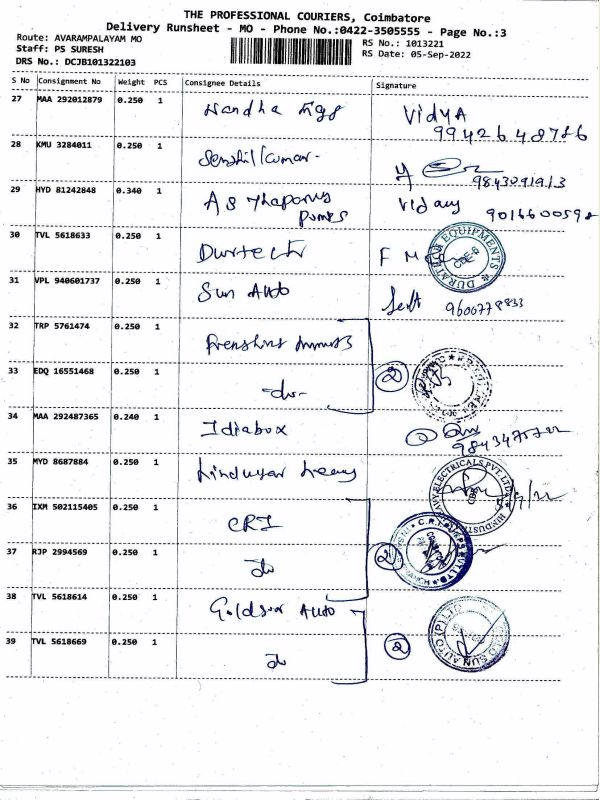 THE PROFESSIONAL COURIERS, Coimbatore
Delivery Runsheet - MO - Phone No.:0422-3505555 - Page No.:3
Route: AVARAMPALAYAM MO
RS No.: 1013221
Staff: PS SURESH
RS Date: 05-Sep-2022
DRS No.: DCJB101322103
S No Consignment No Weight PCS Consignee Details Signature
27 MAA 292012879 0.250 1 Nandha VidyA
9942648786
28 KMU 3284011 0.250 1 Senthilkumar-
9843091913
29 HYD 81242848 0.340 1 A S Thaporus Vidauy
Pumps 9016600592
30 TVL 5618633 0.250 1 Durtech F M DURATECH EQUIPMENTS CBE-6
31 VPL 940601737 0.250 1 Sun Auto 9600778833
32 TRP 5761474 0.250 1
33 EDQ 16551468 0.250 1 -do- 2
34 MAA 292487365 0.240 1 Idiabox 2
35 MYD 8687884 0.250 1 Hindusthan Heavy HEAVY ELECTRICALS PVT LTD
36 IXM 502115405 0.250 1 CRI
37 RJP 2994569 0.250 1 do 2 C.R.I. PUMPS PVT LTD
38 TVL 5618614 0.250 1 Goldsun Auto
39 TVL 5618669 0.250 1 do 2 GOLD SUN AUTO (P) LTD